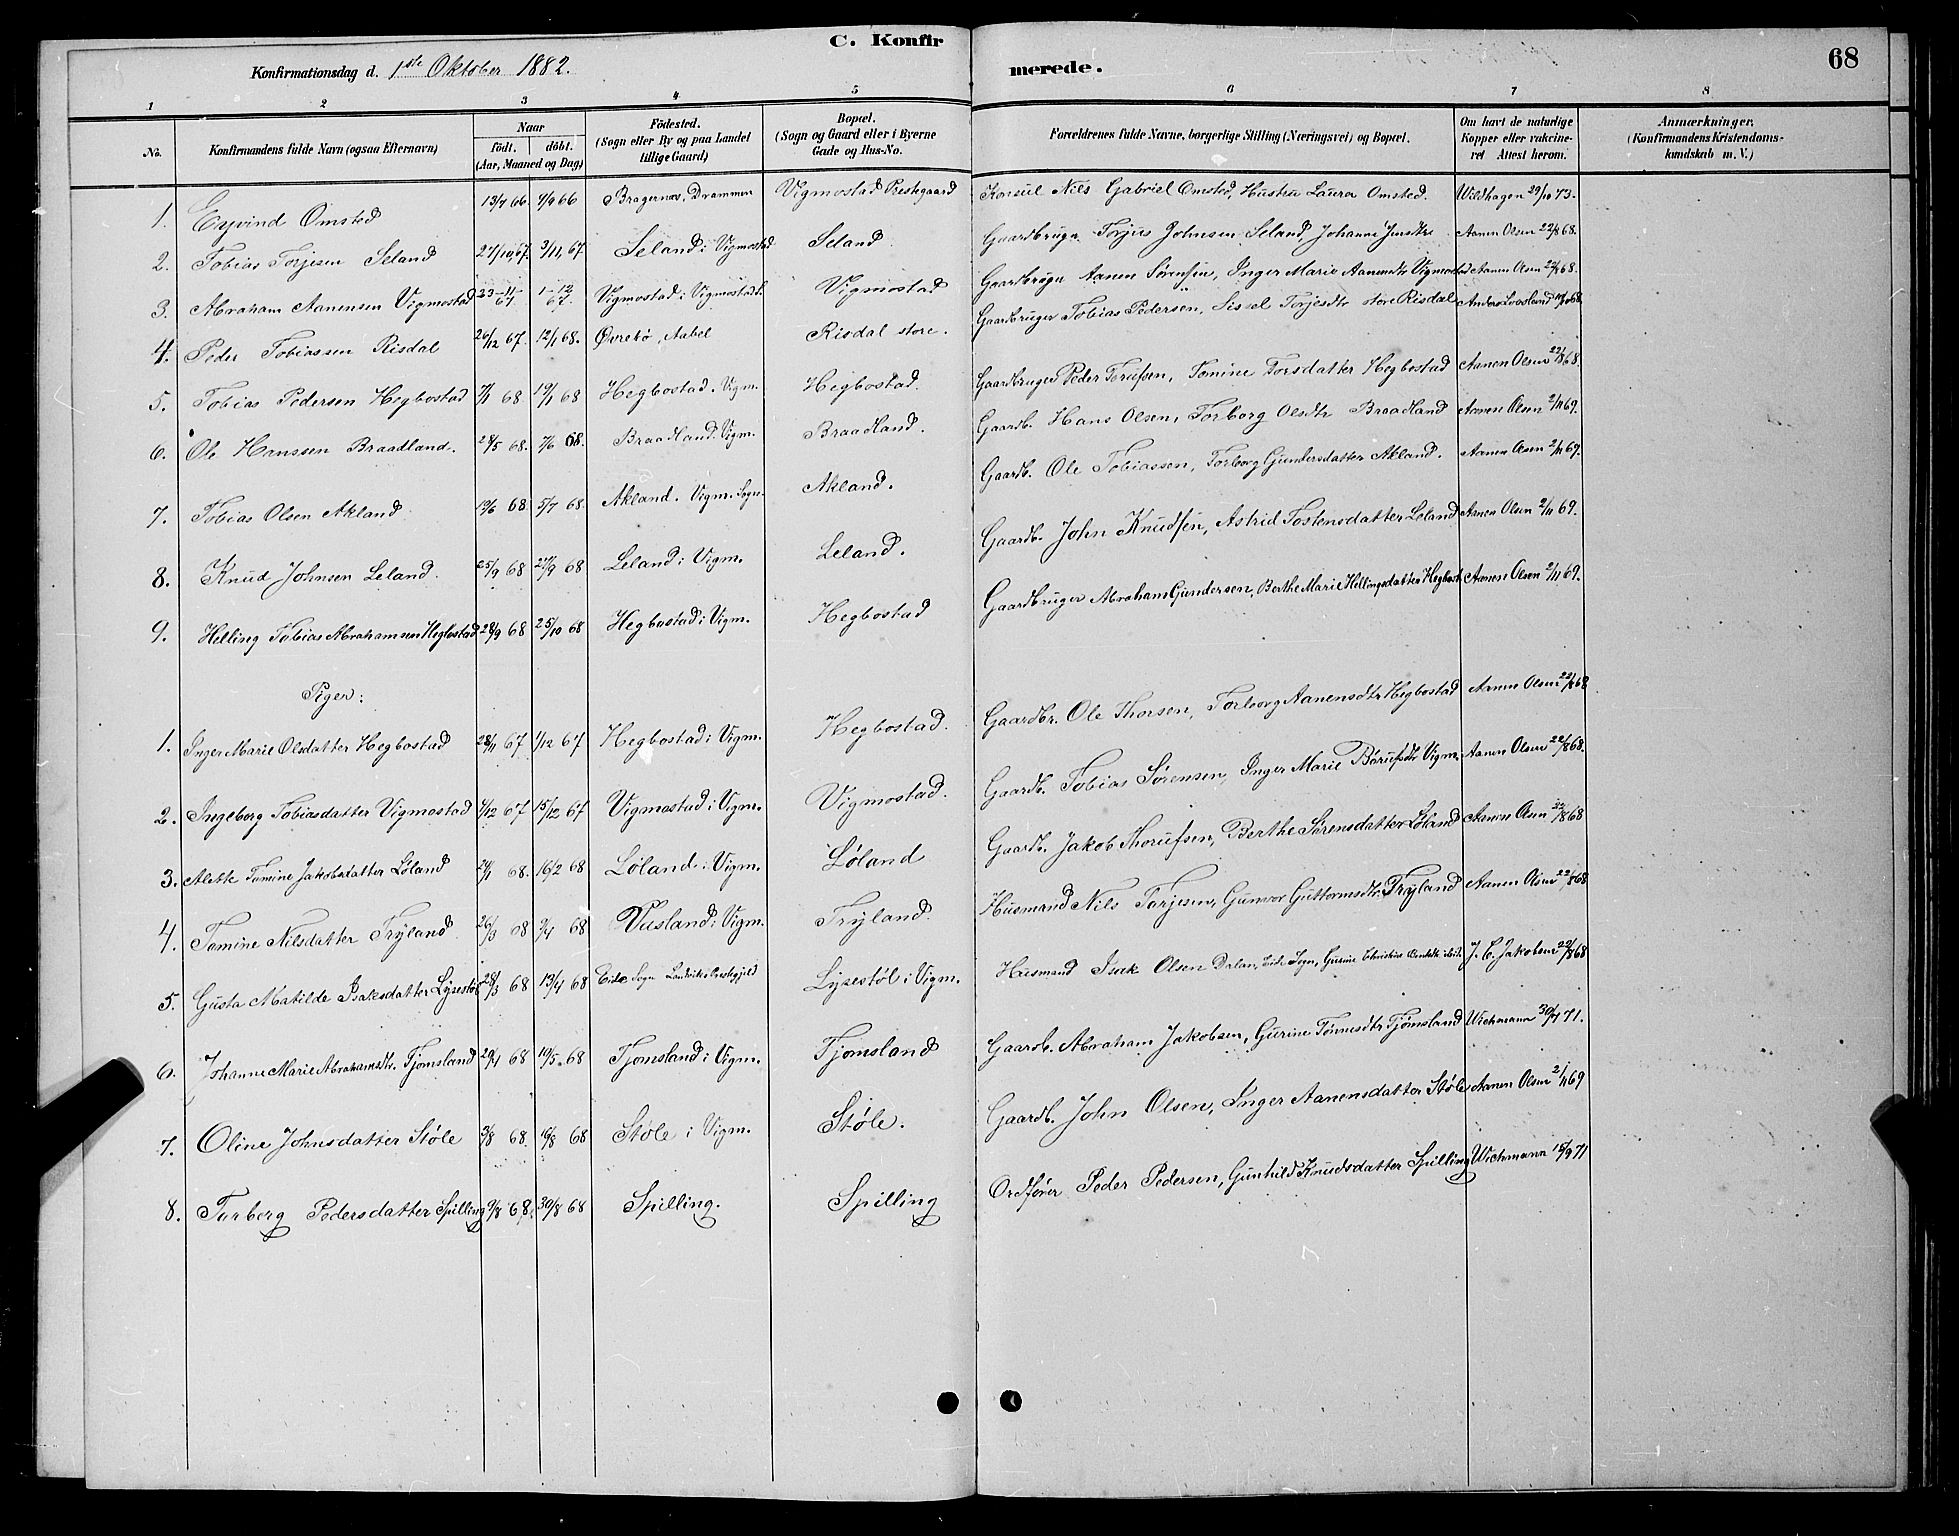 C. Konfir merede. 68
Konfirmationsdag d. 1ste Oktober 1882.
1 2 3 4 5 6 7 8
No.
Konfirmandens fulde Navn (ogsaa Efternavn)
Naar
født. døbt.
(Aar, Maaned og Dag)
Fødested.
(Sogn eller By og paa Landet
tillige Gaard)
Bopæl.
(Sogn og Gaard eller i Byerne
Gade og Hus-No.
Forældrenes fulde Navne, borgerlige Stilling (Næringsvei) og Bopæl.
Om havt de naturlige
Kopper eller vakcine-
ret Attest herom.
Anmærkninger.
(Konfirmandens Kristendoms-
kundskab m. V.)
1. Eyvind Omsted 13/7 66. 9/9 66 Bragernes, Drammen Vigmostad Prestegaard Konsul Nils Gabriel Omsted, Hustru Laura Omsted. Wildhagen 29/10 73.
2. Tobias Torjesen Seland 27/10 67. 3/11 67 Seland i Vigmostad Seland Gaardbruger Torjus Johnsen Seland, Johanne Aanen Olsen 22/8 68.
3. Abraham Aanensen Vigmostad 23-11/67. 1-12/67. Vigmostad i Vigmostad. Vigmostad Gaardbruger Aanen Sørensen, Inger Marie Aanensdtr Vigmostad Aanen Olsen 22/8 68.
4. Peder Tobiassen Risdal 26/12 67. 12/1 68. Øvrebø, Aabel Risdal store. Gaardbruger Tobias Pedersen, Sissel Torjesdtr store Risdal
5. Tobias Pedersen Hegbostad 7/1 68 19/1 68 Hegbostad. Vigm. Hegbostad. Gaardbruger Peder Terufsen, Tomine Torsdatter Hegbostad Aanen Olsen 22/8 68.
6. Ole Hanssen Braadland. 28/5 68. 7/6 68. Braadland. Vigm. Braadland. Gaardb. Hans Olsen, Torborg Olsdtr Braadland Aanen Olsen 2/11 69.
7. Tobias Olsen Akland. 19/6 68. 5/7 68 Akland. Vigm. Sogn. Akland. Gaardb. Ole Tobiassen, Torborg Gundersdatter Akland. Aanen Olsen 2/11 69.
8. Knud Johnsen Leland. 25/9 68 27/9 68 Leland i Vigm. Leland. Gaardb. John Knudsen, Astrid Tostensdatter Leland Aanen Olsen 2/11 69.
9. Helling Tobias Abrahamsen Hegbostad 28/9 68 25/10 68 Hegbostad i Vigm. Hegbostad Gaardbruger Abraham Gundersen, Berthe Marie Hellingsdatter Hegbost. Aanen Olsen 2/11 69.
Piger:
1. Inger Marie Olsdatter Hegbostad 28/11 67 1/12 67 Hegbostad i Vigm. Hegbostad. Gaardbr. Ole Thorsen, Torborg Aanensdtr Hegbostad Aanen Olsen 22/8 68
2. Ingeborg Tobiasdatter Vigmostad 4/12 67 15/12 67 Vigmostad i Vigm. Vigmostad. Gaardb. Tobias Sørensen, Inger Marie Børufsdtr Vigm. Aanen Olsen 22/8 68.
3. Alette Tomine Jakobsdatter Løland 24/1 68. 16/2 68 Løland i Vigm. Løland Gaardb. Jakob Thorufsen, Berthe Sørensdatter Løland Aanen Olsen 22/8 68
4. Tomine Nilsdatter Tryland 26/3 68 68 Vusland i Vigm. Tryland. Husmand Nils Torjesen, Gunvor Guttormsdtr. Tryland Aanen Olsen 22/8 68
5. Gusta Matilde Isaksdatter Lysestøl 28/3 68 13/4 68 Eide Sogn Landviks Prestegjeld Lysestøl i Vigm. Husmand Isak Olsen Dalan, Eide Sogn, Gusine J. C. Jakobsen 22/8 68
6. Johanne Marie Abrahamsdtr. Tjomsland 29/4 68 10/5 68 Tjomsland i Vigm. Tjomsland Gaardb. Abraham Jakobsen, Gurine Tønnesdtr Tjømsland Wichmann 30/7 71.
7. Oline Johnsdatter Støle 3/8 68. 16/8 68 Støle i Vigm. Støle. Gaardb. John Olsen, Inger Aanensdatter Støle Aanen Olsen 2/11 69
8. Torberg Pedersdatter Spilling 9/8 68. 30/8 68 Spilling. Spilling Ordfører Peder Pedersen, Gunhild Knudsdatter Spilling Wichmann 15/9 71